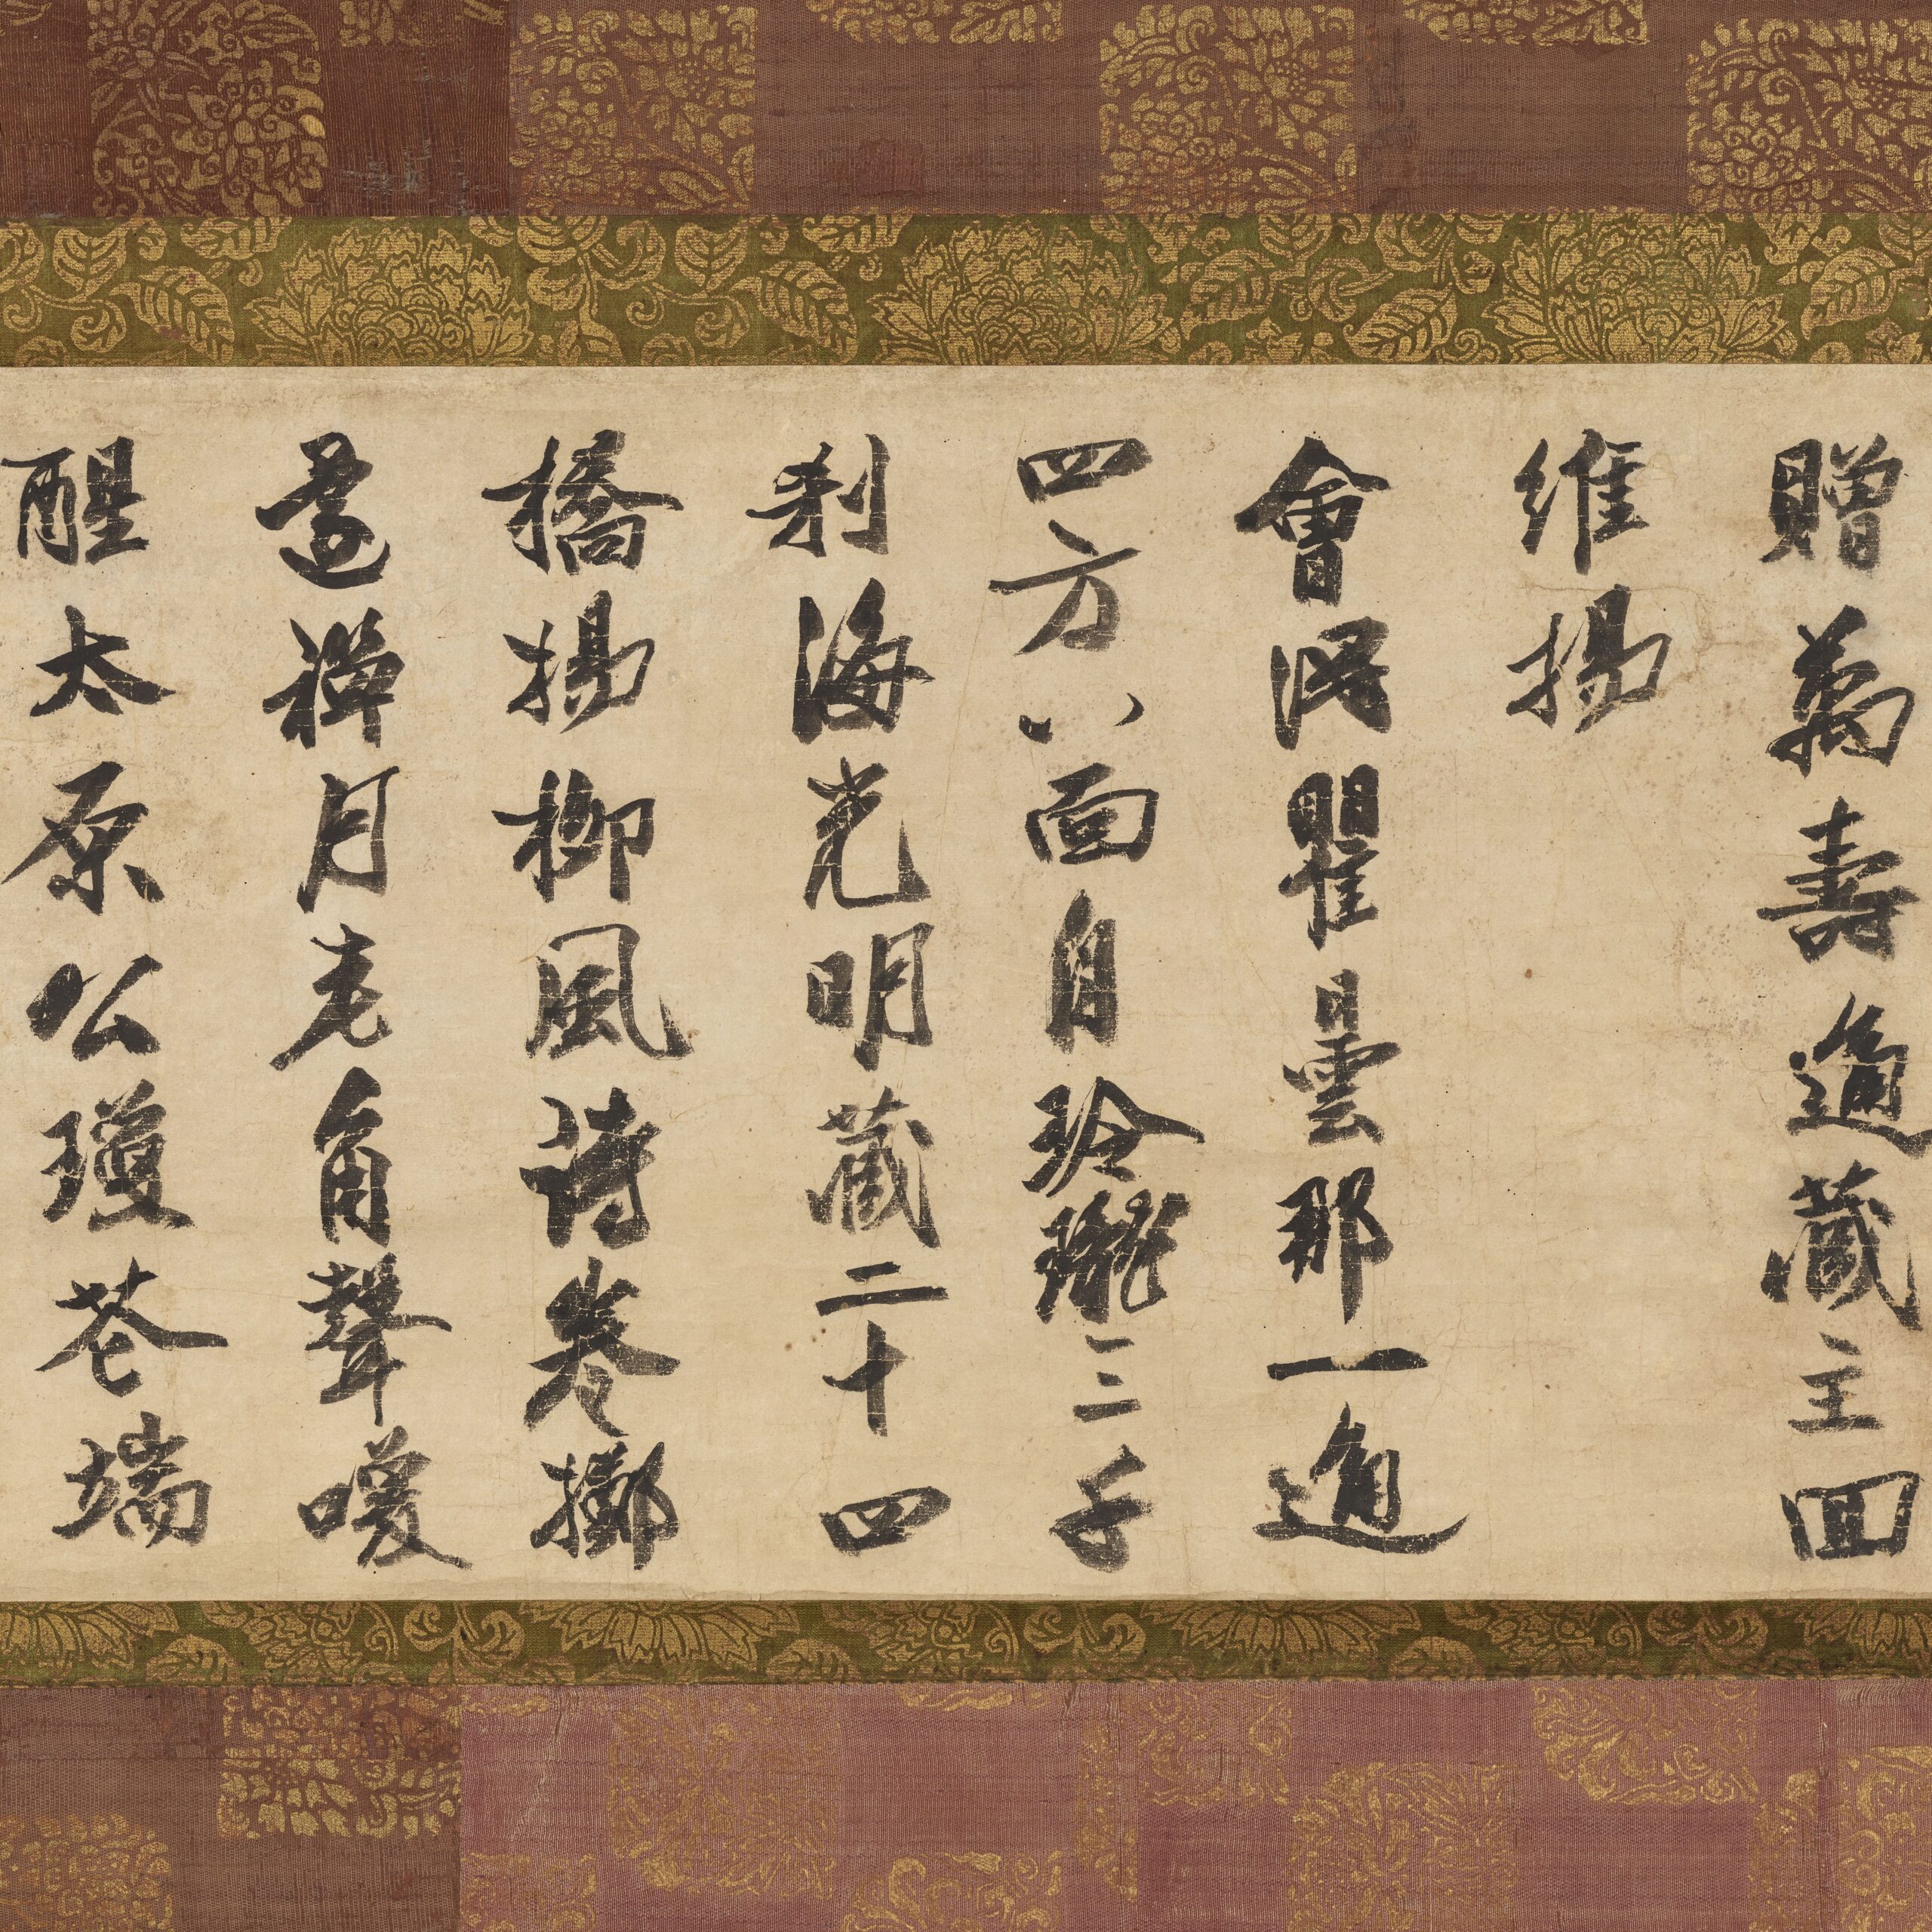 贈萬壽通藏主回
維揚
會得瞿曇那一通
四方八面自玲瓏三千
刹海光明藏二十四
橋揚柳風詩卷擲
還禪月老角聲喚
醒太原公瓊花端